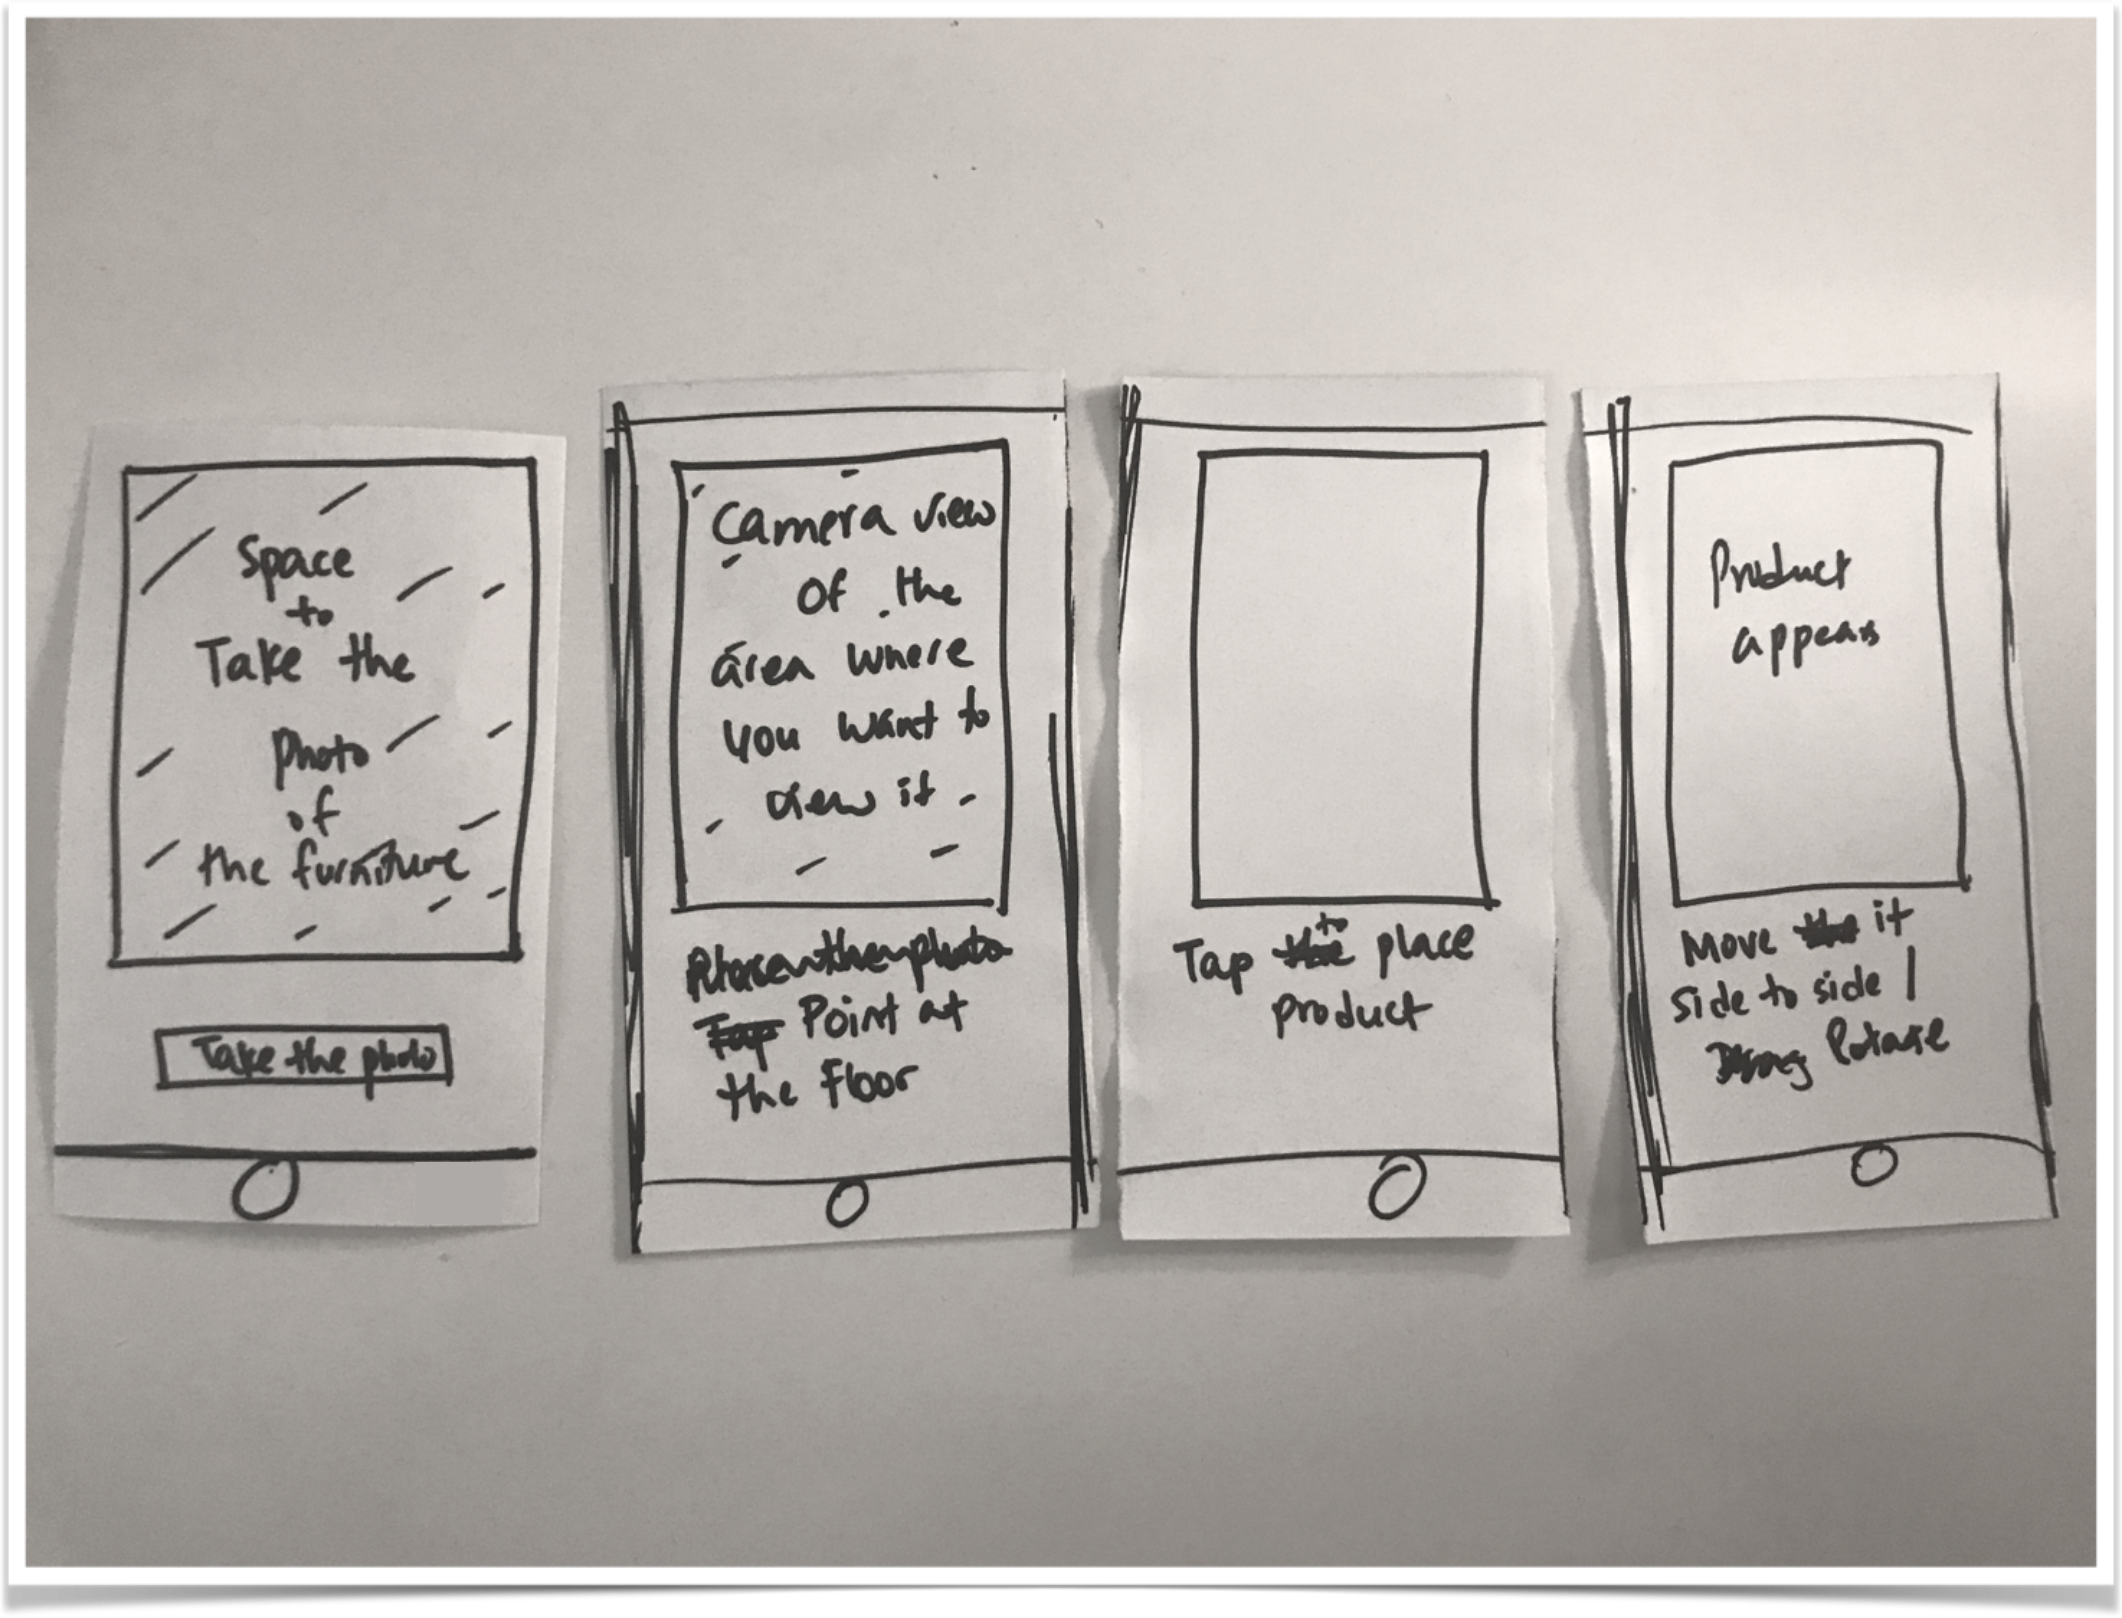 Space
to
Take the
photo
of
the furniture
Take the photo
Camera view
of the
area where
you want to
view it
Point at
the Floor
Tap to place
product
Product
appears
Move it
side to side /
Rotate